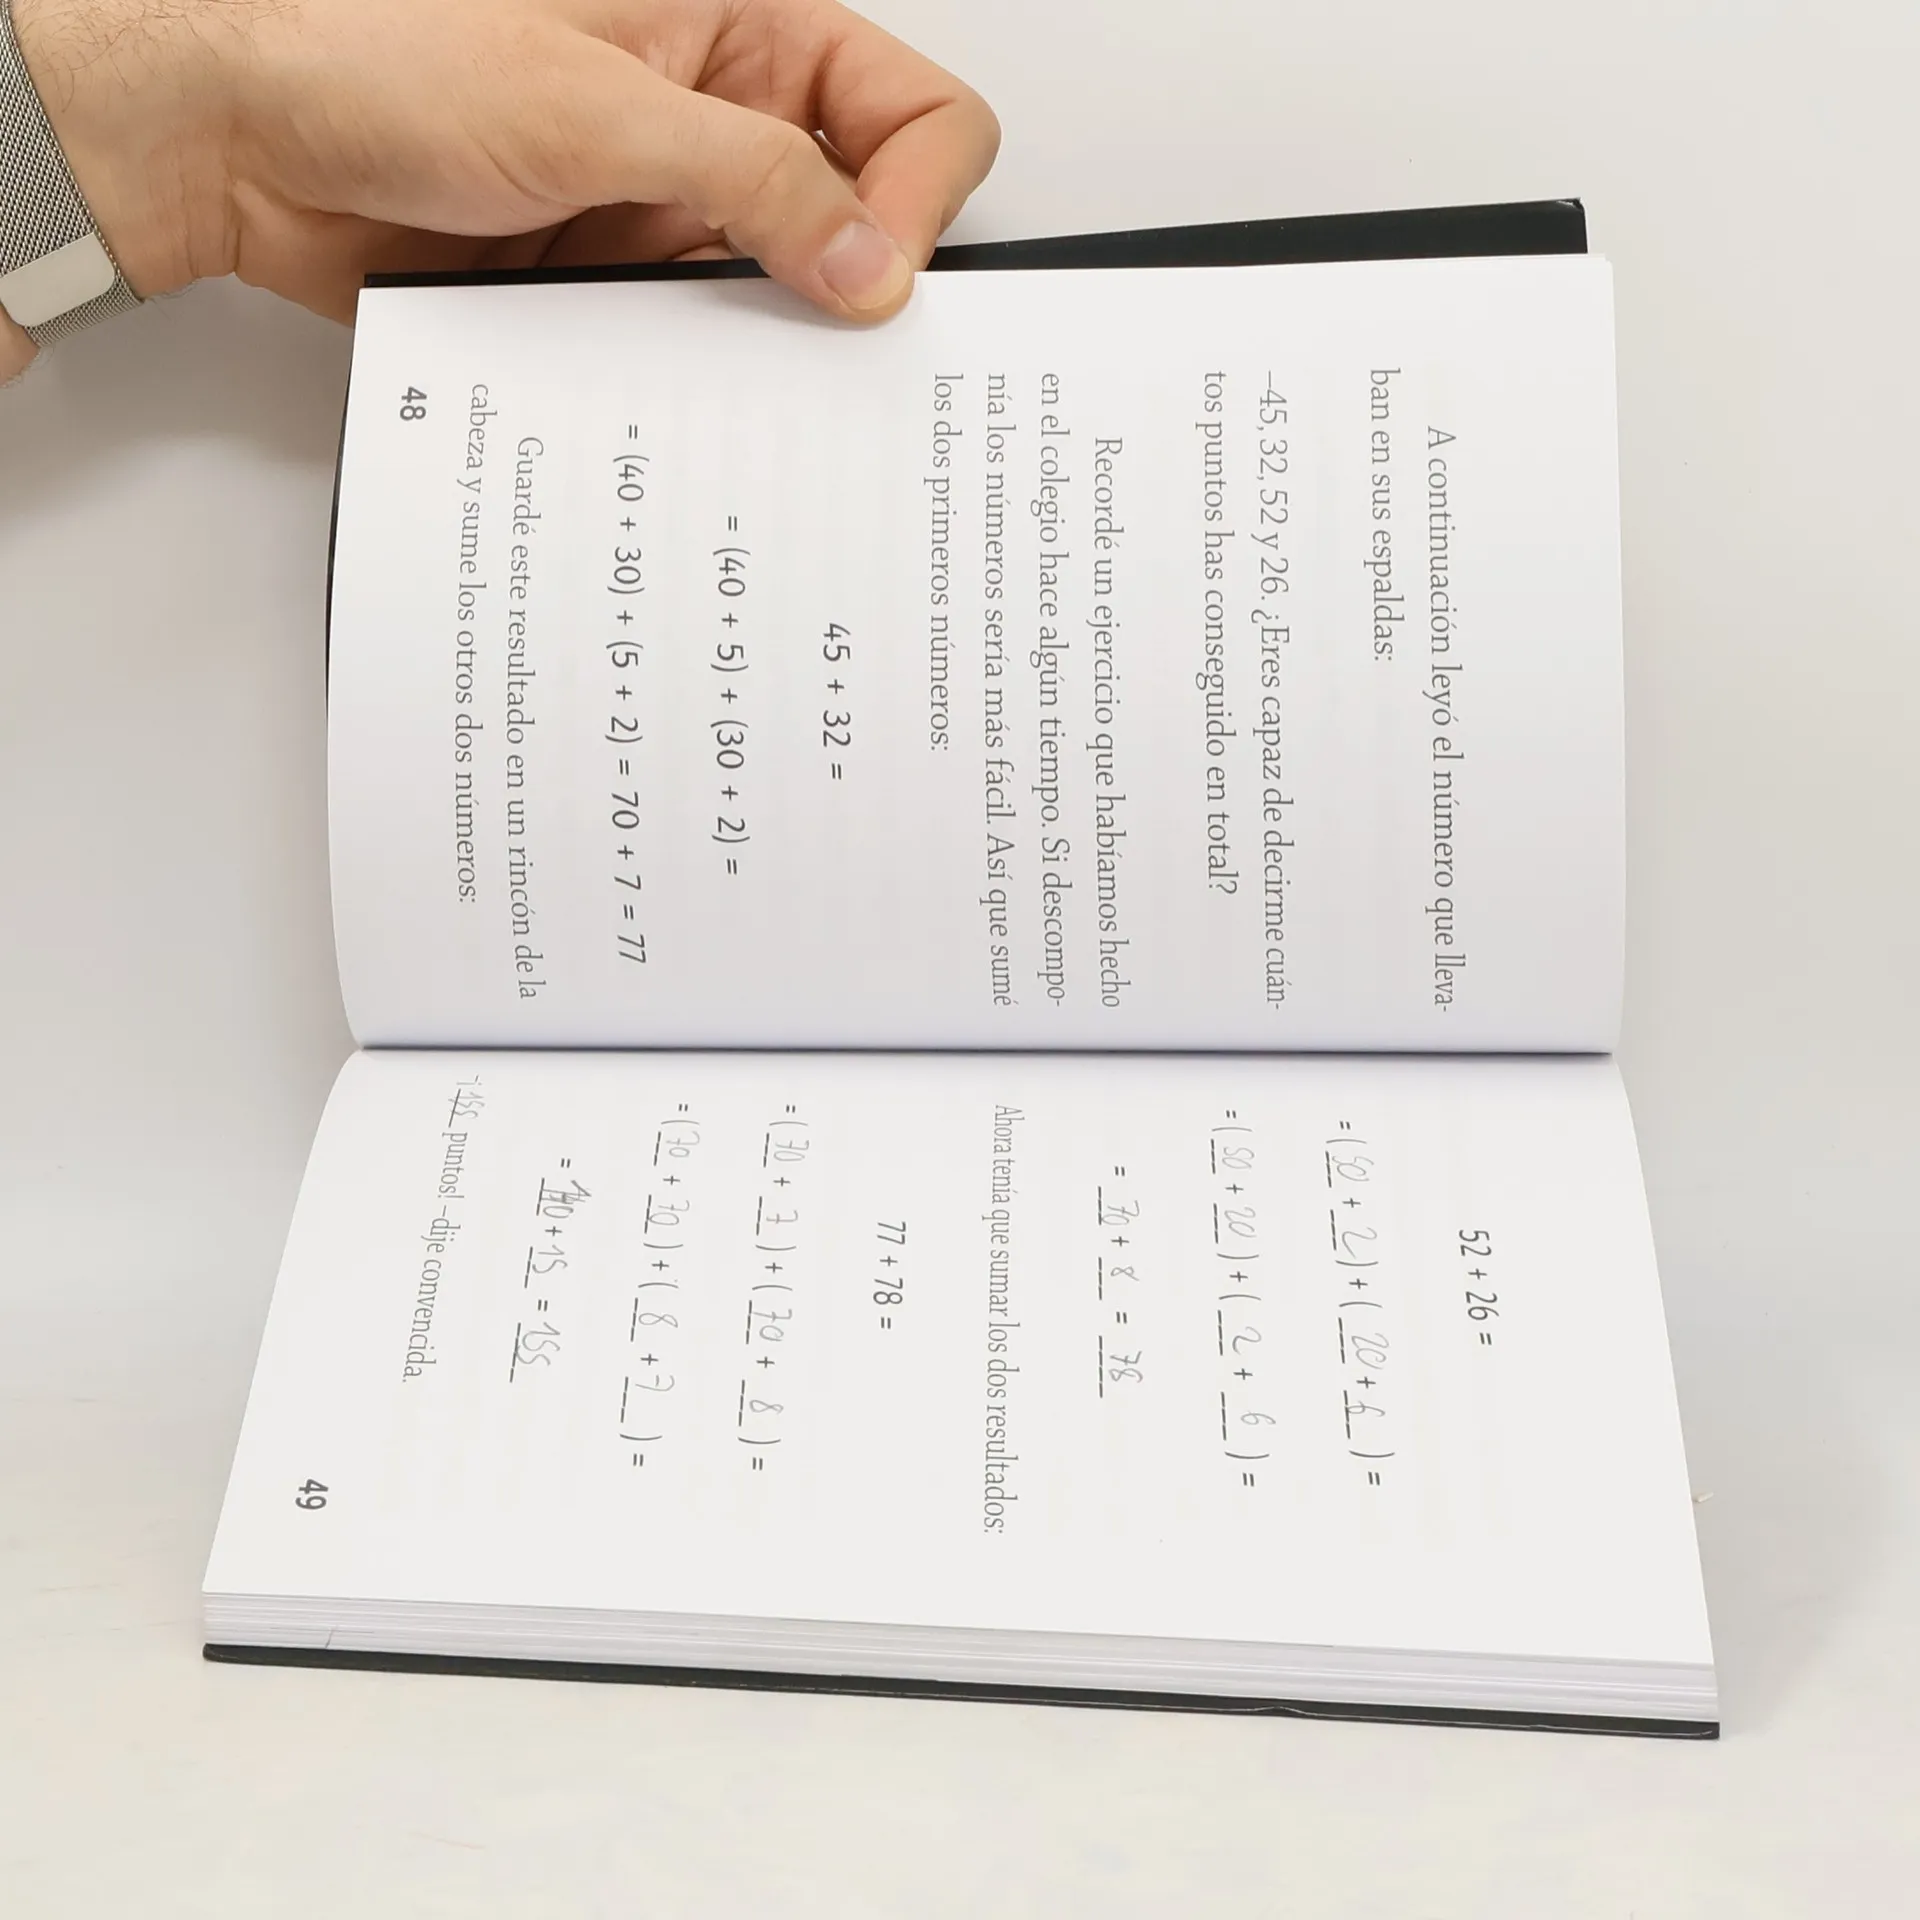 A continuación leyó el número que lleva-
ban en sus espaldas:
–45, 32, 52 y 26. ¿Eres capaz de decirme cuán-
tos puntos has conseguido en total?
Recordé un ejercicio que habíamos hecho
en el colegio hace algún tiempo. Si descompo-
nía los números sería más fácil. Así que sumé
los dos primeros números:
45 + 32 =
= (40 + 5) + (30 + 2) =
= (40 + 30) + (5 + 2) = 70 + 7 = 77
Guardé este resultado en un rincón de la
cabeza y sume los otros dos números:
48
52 + 26 =
= ( 50 + 2 ) + ( 20 + 6 ) =
= ( 50 + 20 ) + ( 2 + 6 ) =
= 70 + 8 = 78
Ahora tenía que sumar los dos resultados:
77 + 78 =
= ( 70 + 7 ) + ( 70 + 8 ) =
= ( 70 + 70 ) + ( 8 + 7 ) =
= 140 + 15 = 155
–¡ 155 puntos! –dije convencida.
49